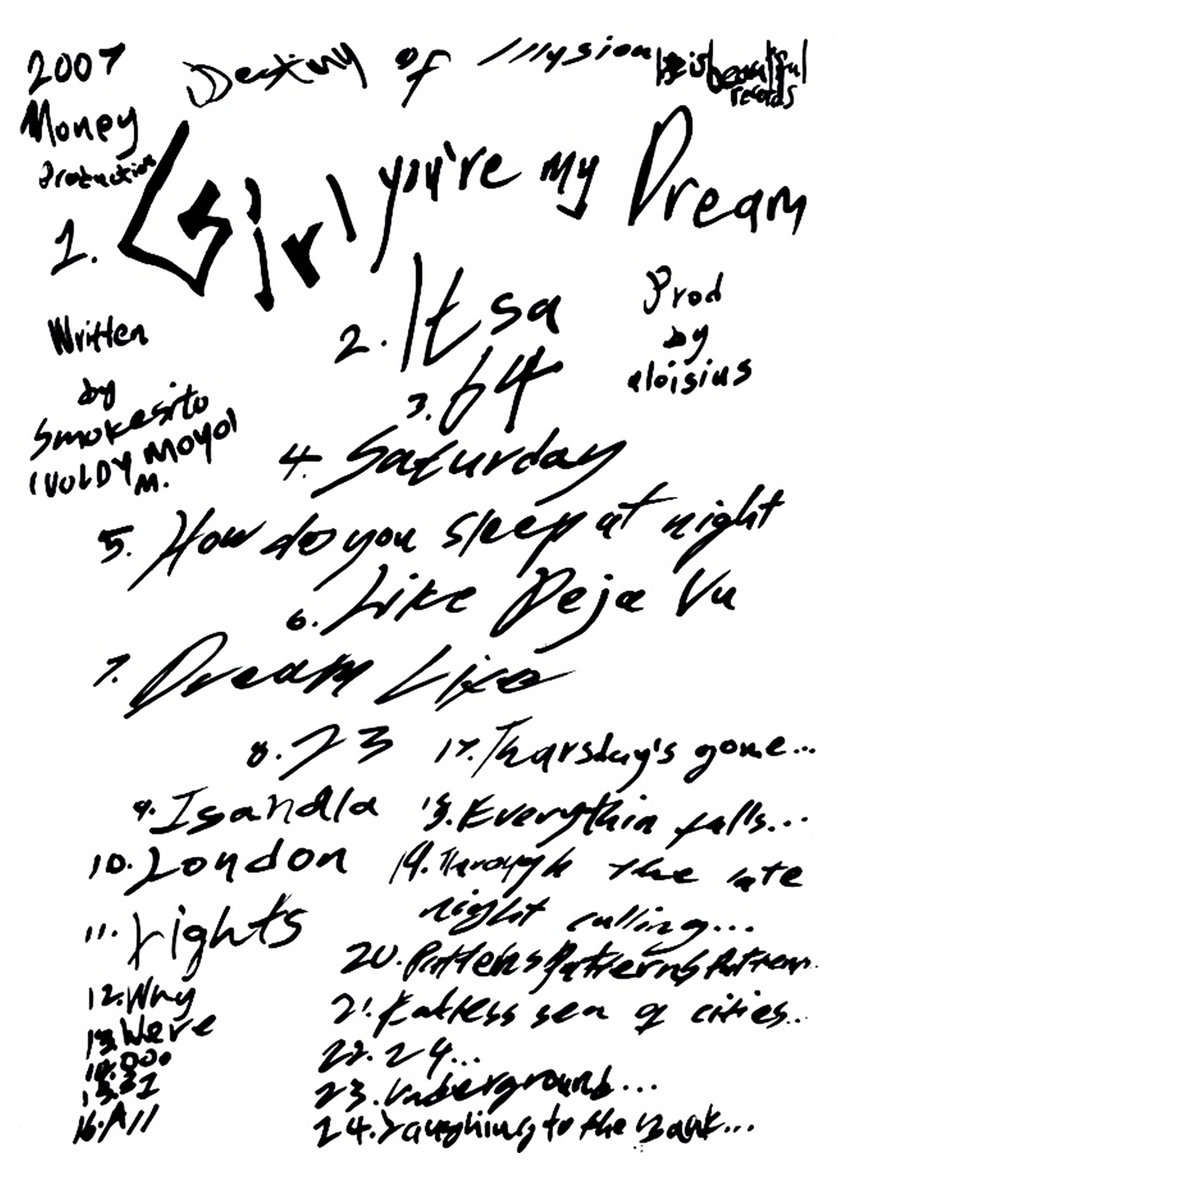 2007
Money
Production
Destiny of Illysion
is beautiful
records
1. Girl you're my Dream
Written
by
Smokesito
(VOLDY MOYO)
M.
Prod
by
aloisius
2. Itsa
3. 64
4. Saturday
5. How do you sleep at night
6. Like Deja Vu
7. Dream Like
8. 23
9. Isandla
10. London
11. Lights
12. Why
13. Were
14. 000
15. 21
16. All
17. Tharsday's gone...
18. Everythin falls...
19. Through the late
night calling...
20. Patterns Patterns Patterns
21. sea of cities...
22. 24...
23. Underground...
24. Laughing to the Bank...